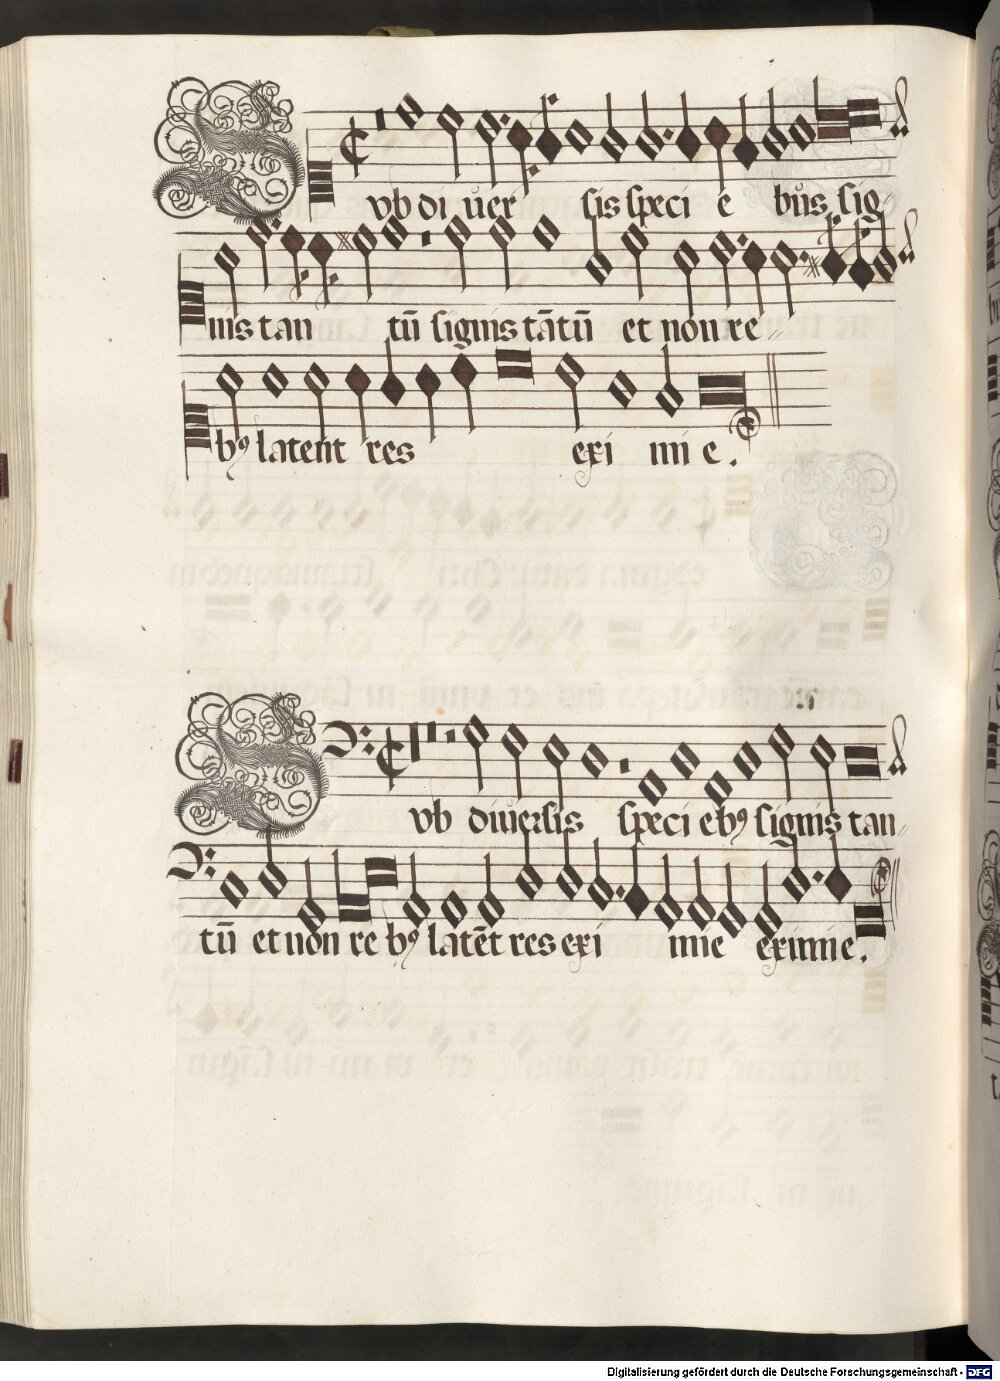 Svb diuer sis speci e bus sig
nis tan tū signis tātū et non re
bꝰ latent res exi mi e.
Svb diuersis speci ebꝰ signis tan
tū et non re bꝰ latēt res exi mie eximie.
Digitalisierung gefördert durch die Deutsche Forschungsgemeinschaft - DFG